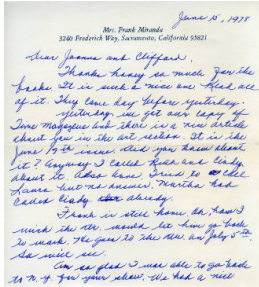 June 15, 1978
Mrs. Frank Miranda
3240 Frederick Way, Sacramento, California 95821
Dear Joanna and Clifford,
Thanks honey so much for the
books. It is such a nice one. Read all
of it. They came day before yesterday.
yesterday we got our copy of
Time magazine and there is a new article
about you in the art section. It is the
June 19th issue. Did you know about
it? Anyway I called Ruth and Cindy
about it also. Tried to call
Laura but no answer. Martha had
called Cindy already.
Frank is still home. Oh, how I
wish the Dr. would let him go back
to work. He goes to the Dr. on July 5th
So will see.
Am so glad I was able to go back
to N.Y. for your show. We had a nice